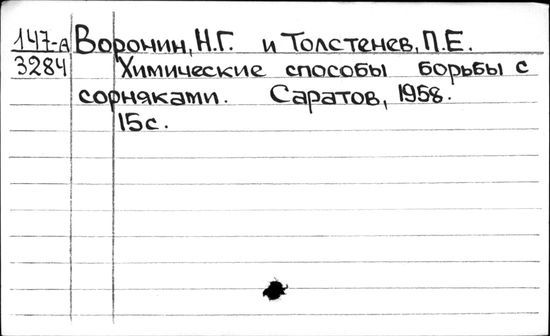 147-А Воронин, Н.Г. и Толстенев, П.Е.
3284 Химические способы борьбы с
сорняками. Саратов, 1958.
15с.